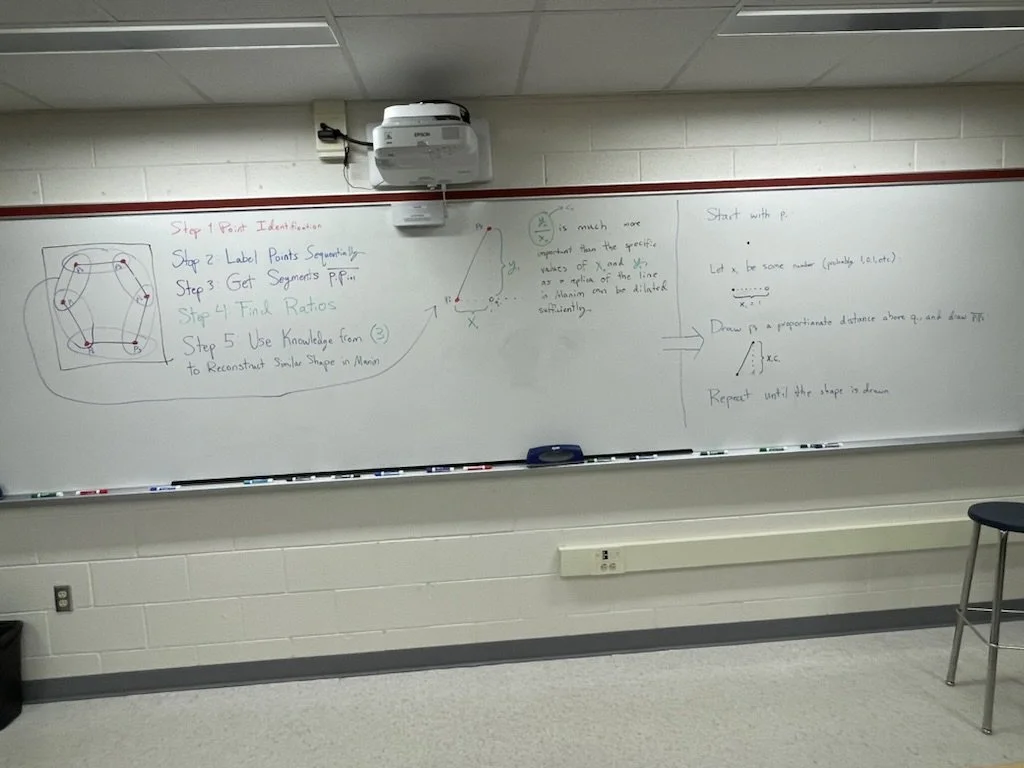 EPSON
Step 1 Point Identification
Step 2: Label Points Sequentially
Step 3: Get Segments
Step 4 Find Ratios
Step 5 Use Knowledge from (3)
to Reconstruct Similar Shape in Manim
X
y₁
y₁/x₁ is much more
important than the specific
values of x₁ and y₁,
as a replica of the line
in Manim can be dilated
sufficiently.
Start with p₁
Let x₁ be some number (probably 1, 0.1, etc.)
x₁ = 1
Draw p₂ a proportionate distance above q₁, and draw
x₁c₁
Repeat until the shape is drawn